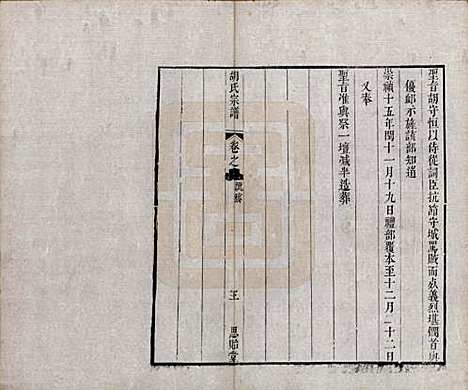 聖旨胡守恒以侍從詞臣抗節守城罵賊而死義烈堪憫首與
優䘏示旌該部知道
崇禎十五年閏十一月十九日禮部覆本至十二月二十二日
又奉
聖旨准與祭一壇減半造葬
胡氏宗譜
卷之
王
思貽堂